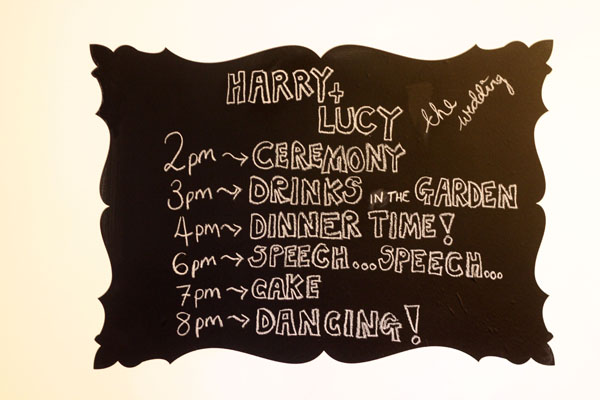 HARRY +
LUCY
the
wedding
2pm → CEREMONY
3pm → DRINKS IN THE GARDEN
4pm → DINNER TIME!
6pm → SPEECH...SPEECH...
7pm → CAKE
8pm → DANCING!